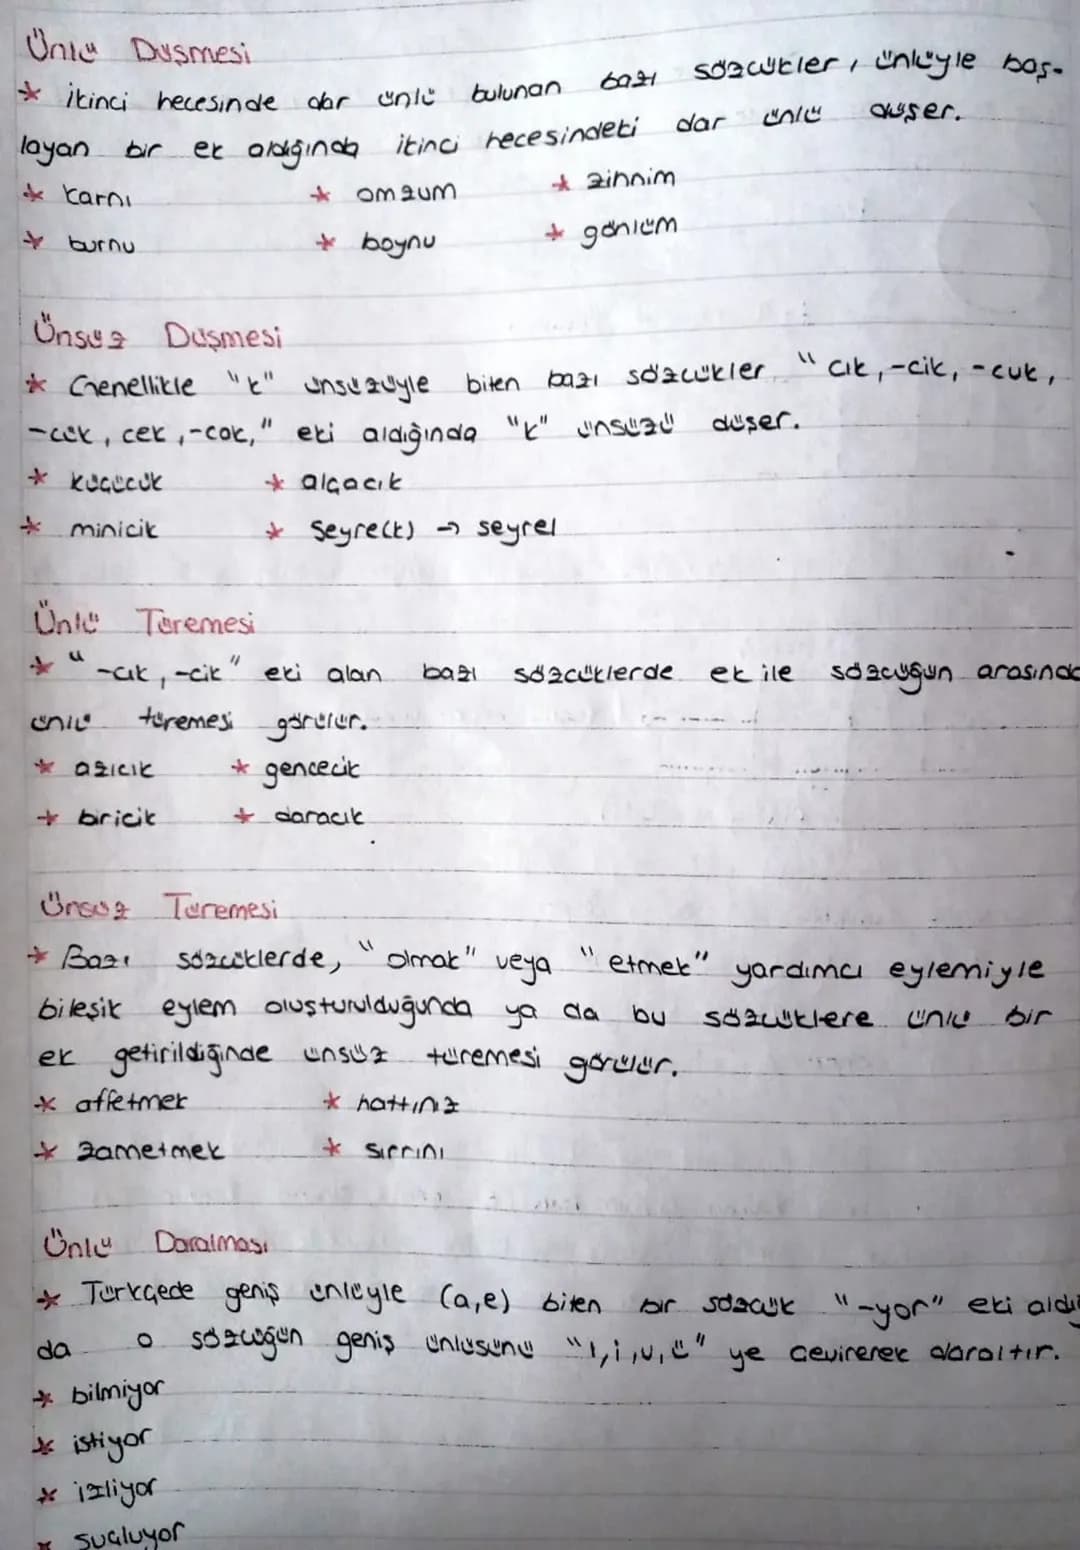 Ünlü Düşmesi
* İkinci hecesinde dar ünlü bulunan bazı sözcükler, ünlüyle baş-
layan bir ek aldığında ikinci hecesindeki dar ünlü düşer.
* karnı * omzum * zihnim
* burnu * boynu * gönlüm
Ünsüz Düşmesi
* Genellikle "k" ünsüzüyle biten bazı sözcükler "cık,-cik, -cuk,
-cük, cek,-cak," eki aldığında "k" ünsüzü düşer.
* küçücük * alçacık
* minicik * Seyre(k) → seyrel
Ünlü Türemesi
* "-cık,-cik" eki alan bazı sözcüklerde ek ile sözcüğün arasında
ünlü türemesi görülür.
* azıcık * gencecik
* biricik * daracık
Ünsüz Türemesi
* Bazı sözcüklerde, "olmak" veya "etmek" yardımcı eylemiyle
bileşik eylem oluşturulduğunda ya da bu sözcüklere ünlü bir
ek getirildiğinde ünsüz türemesi görülür.
* affetmek * hattınız
* zametmek * sırrını
Ünlü Daralması
* Türkçede geniş ünlüyle (a,e) biten bir sözcük "-yor" eki aldı
da o sözcüğün geniş ünlüsünü "ı,i,u,ü" ye çevirerek daraltır.
* bilmiyor
* istiyor
* izliyor
* suçluyor